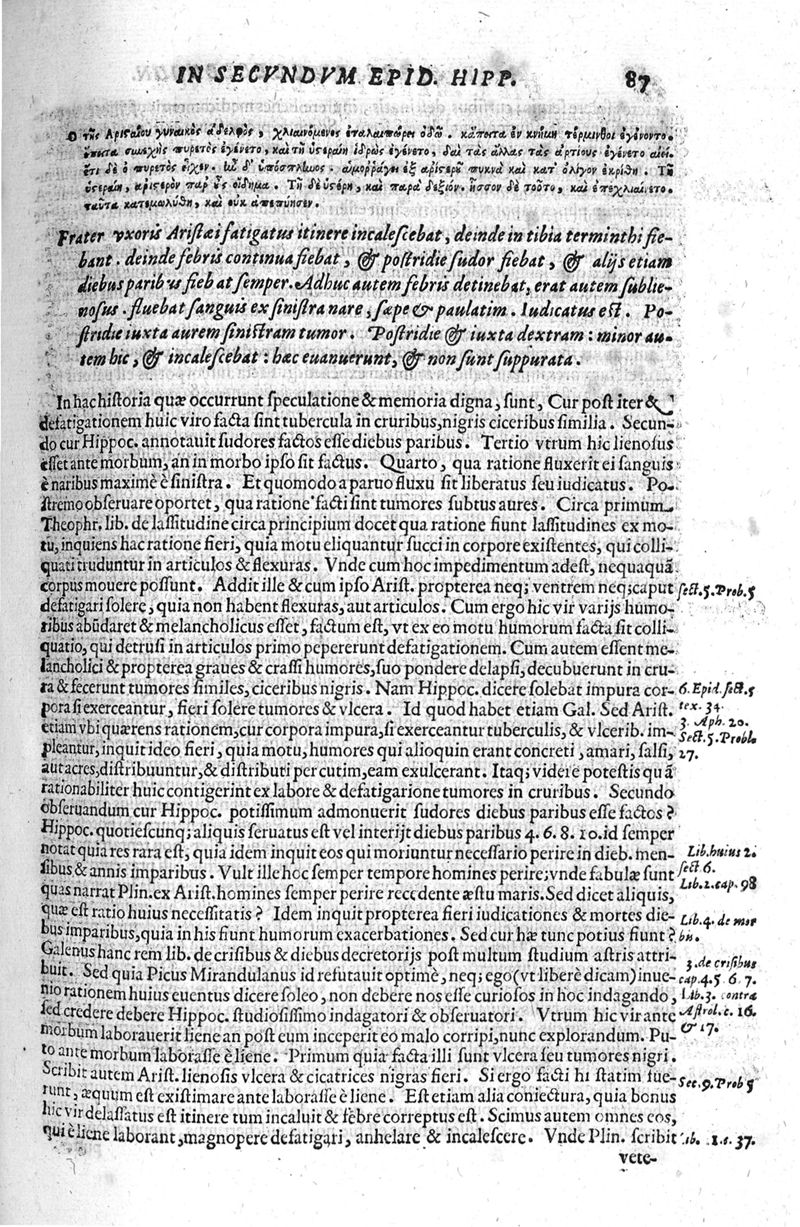 IN SECVNDVM EPID. HIPP. 87
Ο τῆς Αρισαίου γυναικὸς ἀδελφὸς, χλιαινόμενος ἐταλαιπώρει ὁδῷ. κἄπειτα ἐν κνήμῃ τέρμινθοι ἐγένοντο.
ἔπειτα συνεχὴς πυρετὸς ἐγένετο, καὶ τῇ ὑστεραίῃ ἱδρὼς ἐγένετο, καὶ τὰς ἄλλας τὰς ἀρτίους ἐγένετο αἰεί.
ἔτι δὲ ὁ πυρετὸς εἶχεν. ἦν δ' ὑπόσπληνος. ᾑμορράγει ἐξ ἀριστεροῦ πυκνὰ καὶ κατ' ὀλίγον ἐκρίθη. Τῇ
ὑστεραίῃ, ἀριστερὸν παρ' οὖς οἴδημα. Τῇ δὲ ὑστέρῃ, καὶ παρὰ δεξιόν. ἧσσον δὲ τοῦτο, καὶ ἐπεχλιαίνετο.
ταῦτα κατεμωλύθη, καὶ οὐκ ἀπεπύησεν.
Frater vxoris Aristæi fatigatus itinere incalescebat, deinde in tibia terminthi fie-
bant. deinde febris continua fiebat, & postridie sudor fiebat, & alijs etiam
diebus paribus fiebat semper. Adhuc autem febris detinebat, erat autem sublie-
nosus. fluebat sanguis ex sinistra nare, sæpe & paulatim. Iudicatus est. Po-
stridie iuxta aurem sinistram tumor. Postridie & iuxta dextram: minor au-
tem hic, & incalescebat: hæc euanuerunt, & non sunt suppurata.
In hac historia quæ occurrunt speculatione & memoria digna, sunt, Cur post iter &
defatigationem huic viro facta sint tubercula in cruribus, nigris ciceribus similia. Secun-
do cur Hippoc. annotauit sudores factos esse diebus paribus. Tertio vtrum hic lienosus
esset ante morbum, an in morbo ipso sit factus. Quarto, qua ratione fluxerit ei sanguis
è naribus maximè è sinistra. Et quomodo a paruo fluxu sit liberatus seu iudicatus. Po-
stremo obseruare oportet, qua ratione facti sint tumores subtus aures. Circa primum
Theophr. lib. de lassitudine circa principium docet qua ratione fiunt lassitudines ex mo-
tu, inquiens hac ratione fieri, quia motu eliquantur succi in corpore existentes, qui colli-
quati truduntur in articulos & flexuras. Vnde cum hoc impedimentum adest, nequaquā
corpus mouere possunt. Addit ille & cum ipso Arist. propterea neq; ventrem neq; caput sect. 5. Prob. 5
defatigari solere, quia non habent flexuras, aut articulos. Cum ergo hic vir varijs humo-
ribus abūdaret & melancholicus esset, factum est, vt ex eo motu humorum facta sit colli-
quatio, qui detrusi in articulos primo pepererunt defatigationem. Cum autem essent me-
lancholici & propterea graues & crassi humores, suo pondere delapsi, decubuerunt in cru-
ra & fecerunt tumores similes, ciceribus nigris. Nam Hippoc. dicere solebat impura cor- 6. Epid. sect. 5
pora si exerceantur, fieri solere tumores & vlcera. Id quod habet etiam Gal. Sed Arist. tex. 34.
etiam vbi quærens rationem, cur corpora impura, si exerceantur tuberculis, & vlcerib. im- 3. Aph. 20. Sect. 5. Probl.
pleantur, inquit ideo fieri, quia motu, humores qui alioquin erant concreti, amari, salsi, 27.
aut acres, distribuuntur, & distributi per cutim, eam exulcerant. Itaq; videre potestis quā
rationabiliter huic contigerint ex labore & defatigatione tumores in cruribus. Secundo
obseruandum cur Hippoc. potissimum admonuerit sudores diebus paribus esse factos?
Hippoc. quotiescunq; aliquis seruatus est vel interijt diebus paribus 4. 6. 8. 10. id semper
notat quia res rara est, quia idem inquit eos qui moriuntur necessario perire in dieb. men- Lib. huius 2.
sibus & annis imparibus. Vult ille hoc semper tempore homines perire; vnde fabulæ sunt sect 6.
quas narrat Plin. ex Arist. homines semper perire recedente æstu maris. Sed dicet aliquis, Lib. 2. cap. 98
quæ est ratio huius necessitatis? Idem inquit propterea fieri iudicationes & mortes die- Lib. 4. de mor
bus imparibus, quia in his fiunt humorum exacerbationes. Sed cur hæ tunc potius fiunt? bis.
Galenus hanc rem lib. de crisibus & diebus decretorijs post multum studium astris attri- 3. de crisibus
buit. Sed quia Picus Mirandulanus id refutauit optimè, neq; ego (vt liberè dicam) inue- cap. 4. 5 6. 7.
nio rationem huius euentus dicere soleo, non debere nos esse curiosos in hoc indagando, Lib. 3. contra
sed credere debere Hippoc. studiosissimo indagatori & obseruatori. Vtrum hic vir ante Astrol. c. 16.
morbum laborauerit liene an post eum inceperit eo malo corripi, nunc explorandum. Pu- & 17.
to ante morbum laborasse è liene. Primum quia facta illi sunt vlcera seu tumores nigri.
Scribit autem Arist. lienosis vlcera & cicatrices nigras fieri. Si ergo facti hi statim fue- Sec. 9. Prob 5
runt, æquum est existimare ante laborasse è liene. Est etiam alia coniectura, quia bonus
hic vir delassatus est itinere tum incaluit & febre correptus est. Scimus autem omnes eos,
qui è liene laborant, magnopere defatigari, anhelare & incalescere. Vnde Plin. scribit lib. 1. c. 37.
vete-